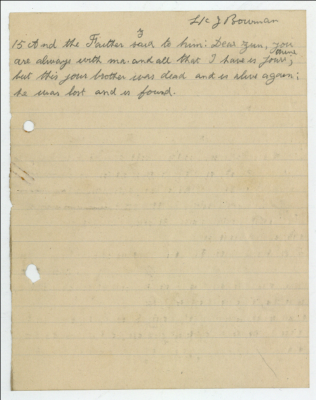 J Bowman
3
15 And the Father said to him: Dear son, you
are always with me and all that I have is yours,
thine
but this your brother was dead and is alive again;
he was lost and is found.